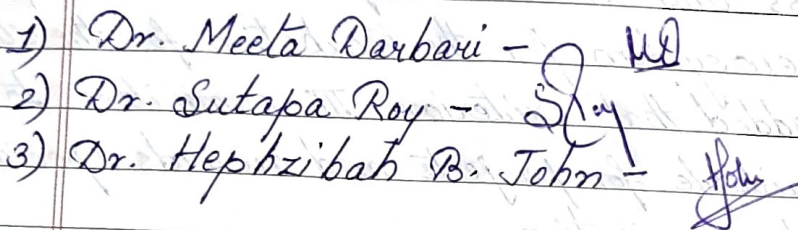 1) Dr. Meeta Darbari - MD
2) Dr. Sutapa Roy - SRoy
3) Dr. Hephzibah B. John - HJohn